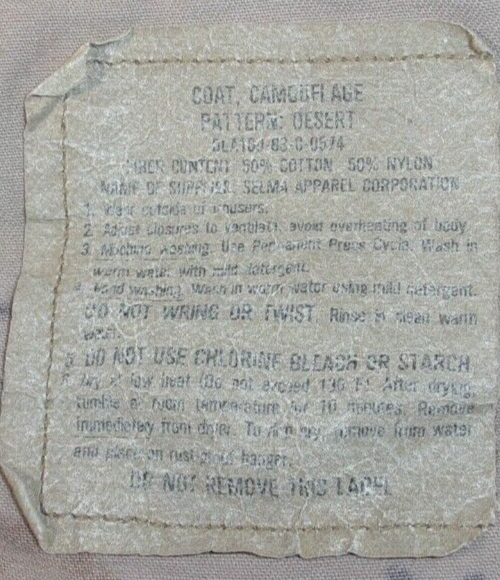 COAT, CAMOUFLAGE
PATTERN: DESERT
DLA100-83-C-0574
FIBER CONTENT 50% COTTON 50% NYLON
NAME OF SUPPLIER, SELMA APPAREL CORPORATION
1. Wear outside of trousers.
2. Adjust closures to ventilate, avoid overheating of body
3. Machine washing. Use Permanent Press Cycle. Wash in
warm water with mild detergent.
4. Hand washing. Wash in warm water using mild detergent.
DO NOT WRING OR TWIST. Rinse in clean warm
water.
5. DO NOT USE CHLORINE BLEACH OR STARCH
6. Dry at low heat (Do not exceed 130 F). After drying,
tumble at room temperature for 10 minutes. Remove
immediately from dryer. To drip dry, remove from water
and place on rust-proof hanger.
DO NOT REMOVE THIS LABEL